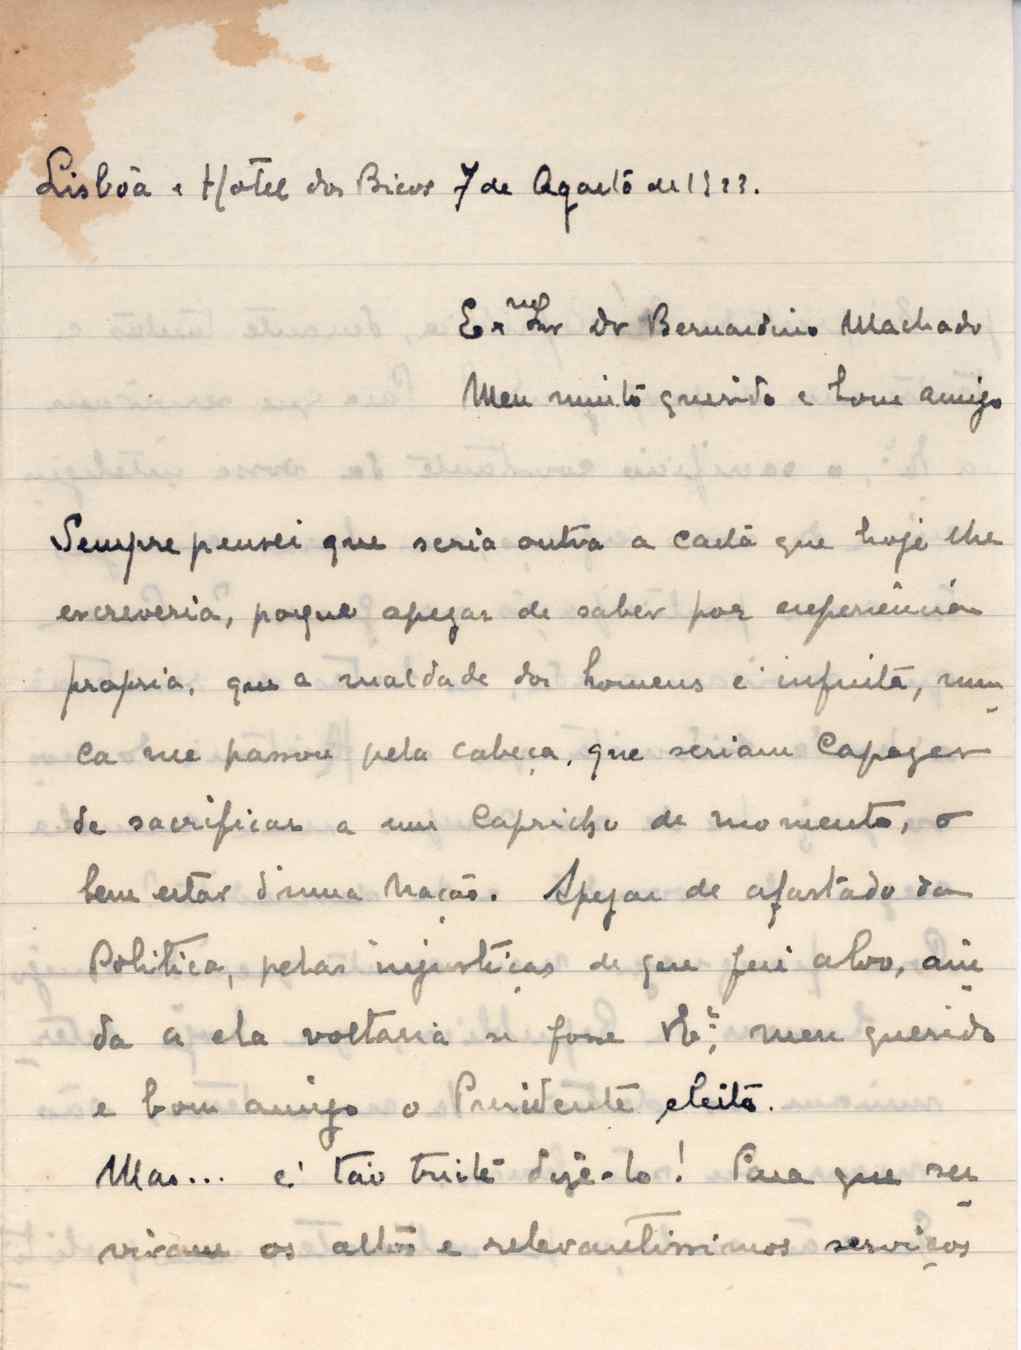 Lisbôa e Hotel dos Bicos 7 de Agosto de 1923.
Exmo Snr Dr Bernardino Machado
Meu muito querido e bom amigo
Sempre pensei que seria outra a carta que hoje lhe
escreveria, porque apezar de saber por experiência
propria, que a maldade dos homens é infinita, nun-
ca me passou pela cabeça, que seriam capazes
de sacrificar a um capricho de momento, o
bem estar d'uma Nação. Apezar de afastado da
Politica, pelas injustiças de que fui alvo, ain-
da a ela voltaria se fosse V. Exa, meu querido
e bom amigo o Presidente eleito.
Mas... é tão triste dizê-lo! Para que ser-
viram os altos e relevantissimos serviços